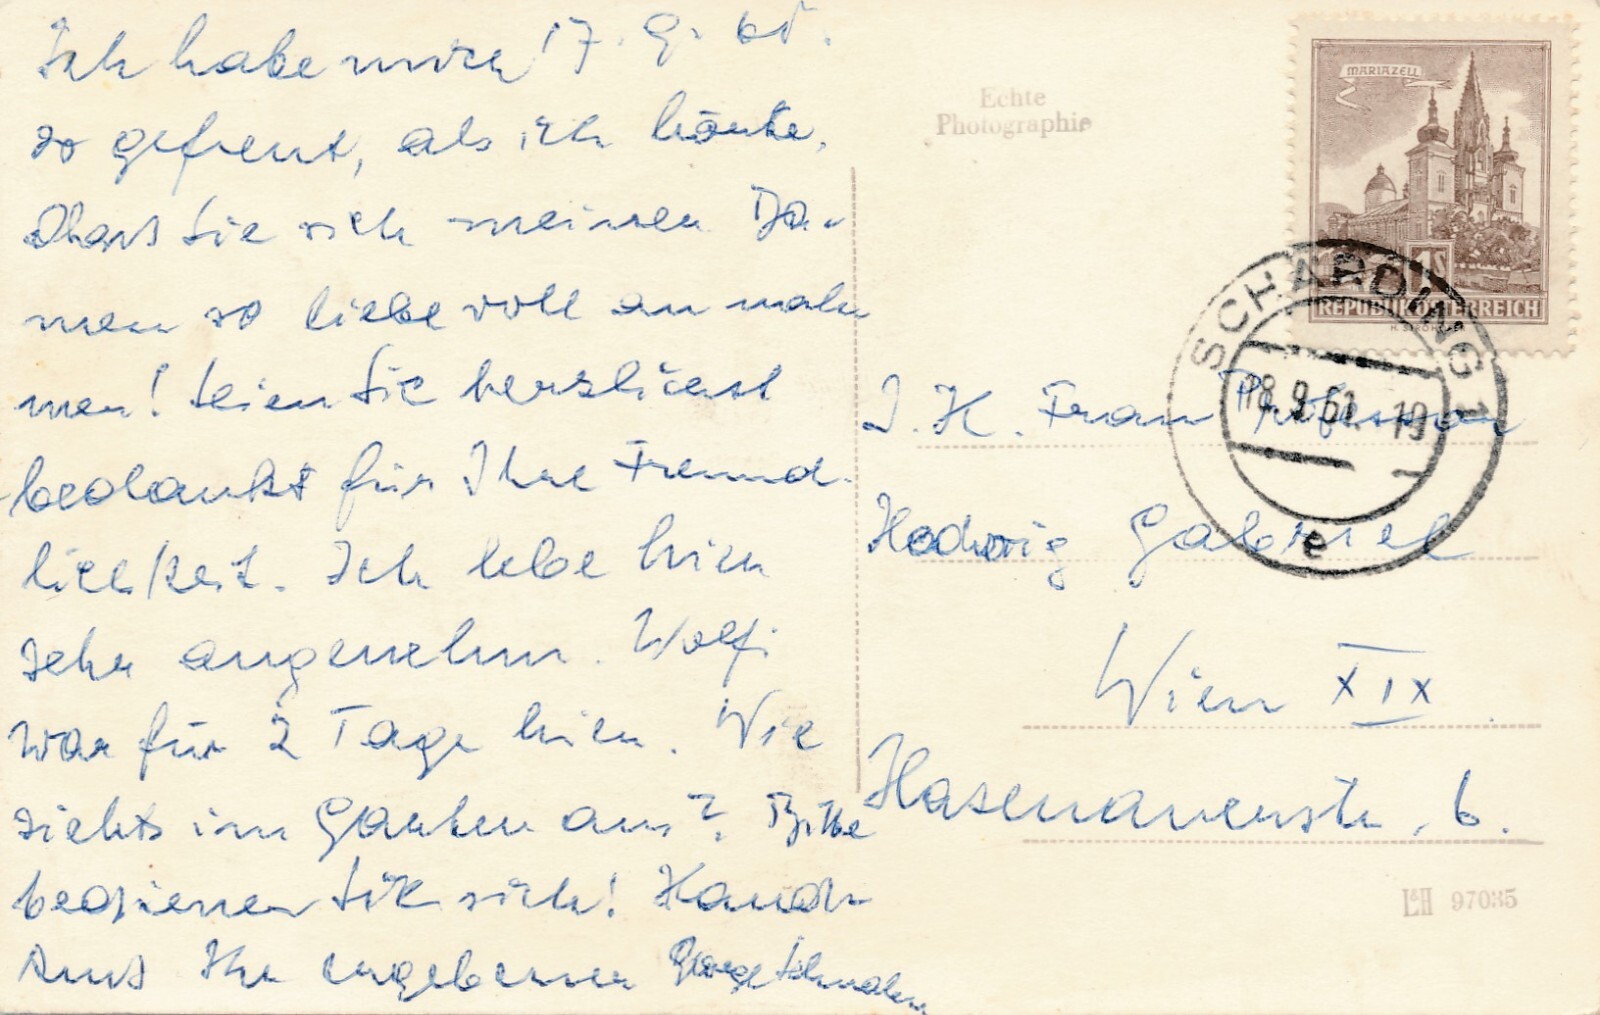 17. 9. 61.
Ich habe mich
so gefreut, als ich hörte,
dass Sie sich meiner Da-
men so liebevoll annah-
men! Seien Sie herzlichst
bedankt für Ihre Freund-
lichkeit. Ich lebe hier
sehr angenehm. Wolfi
war für 2 Tage hier. Wie
siehts im Garten aus? Bitte
bedienen Sie sich! Handk
kuss Ihr ergebener George
Echte
Photographie
MARIAZELL
1S
REPUBLIK ÖSTERREICH
SCHÄRDING 1
18.9.61. 19
e
I. H. Frau Professor
Hedwig Gabriel
Wien XIX
Hasenauerstr. 6.
L&H 97035